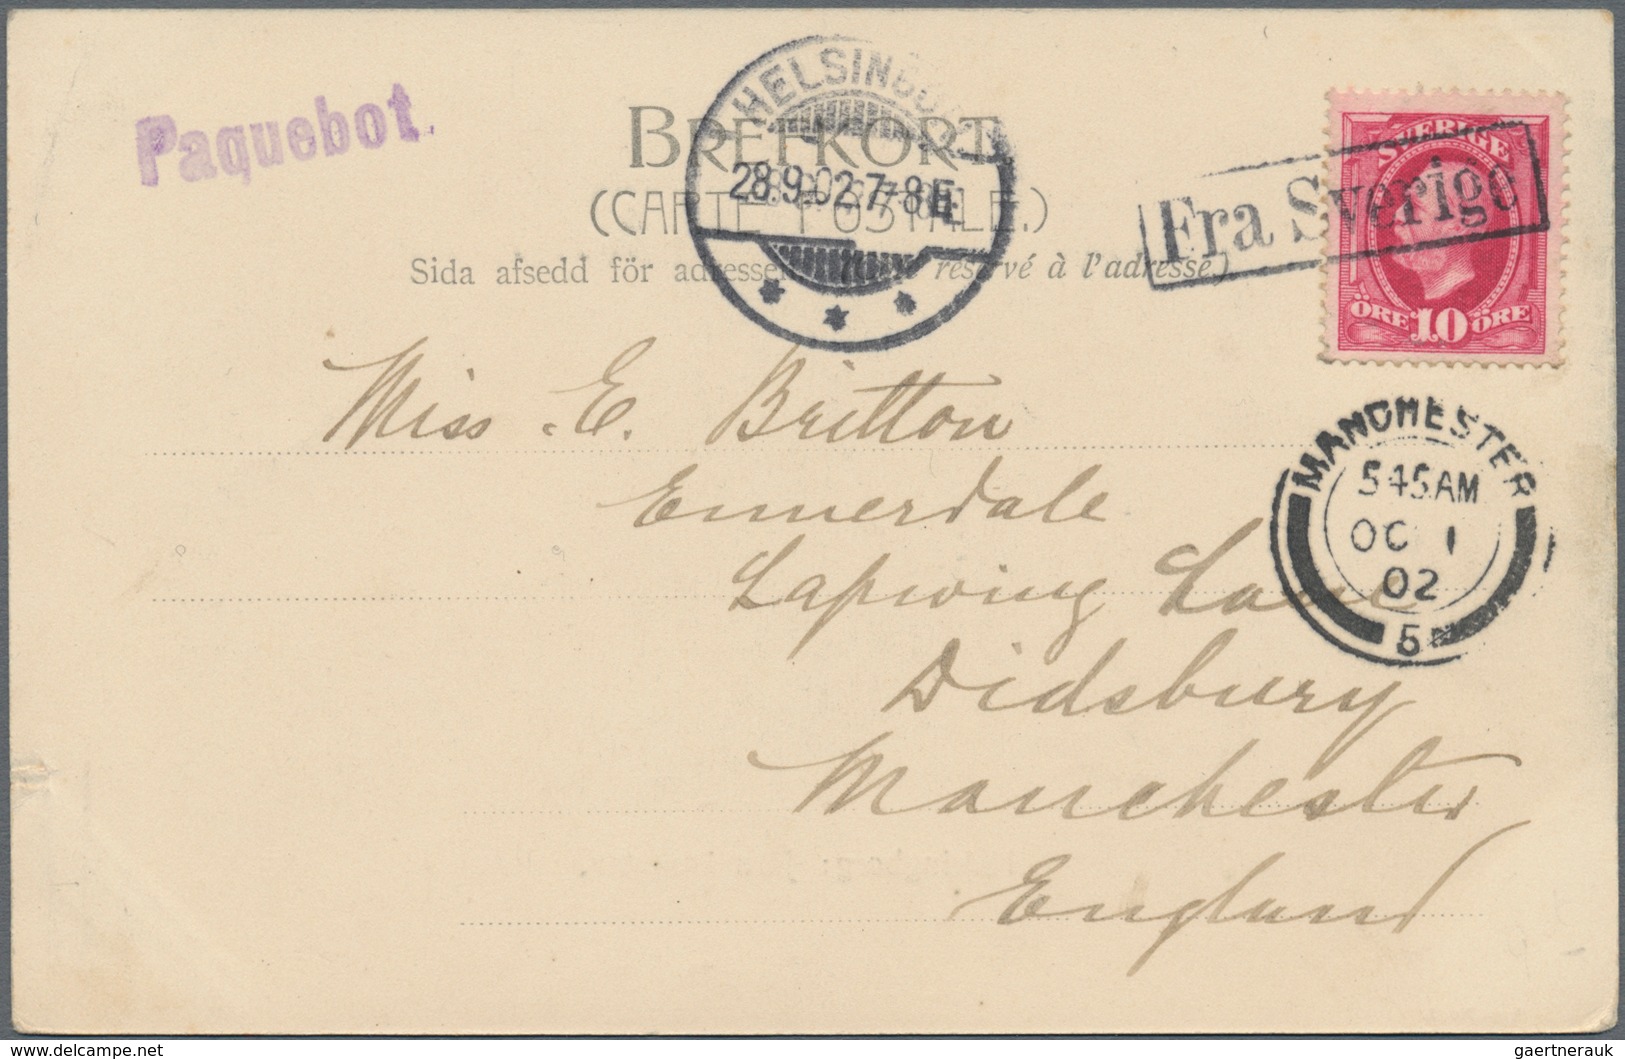 Paquebot
BREFKORT
(CARTE POSTALE.)
Sida afsedd för adressen réservé à l'adresse)
HELSINGBORG
28.9.02.7-8E
Fra Sverige
SVERIGE
ÖRE 10 ÖRE
MANCHESTER
545AM
OC 1
02
5
Miss E. Britton
Ennerdale
Lapwing Lane
Didsbury
Manchester
England
www.delcampe.net
gaertnerauk